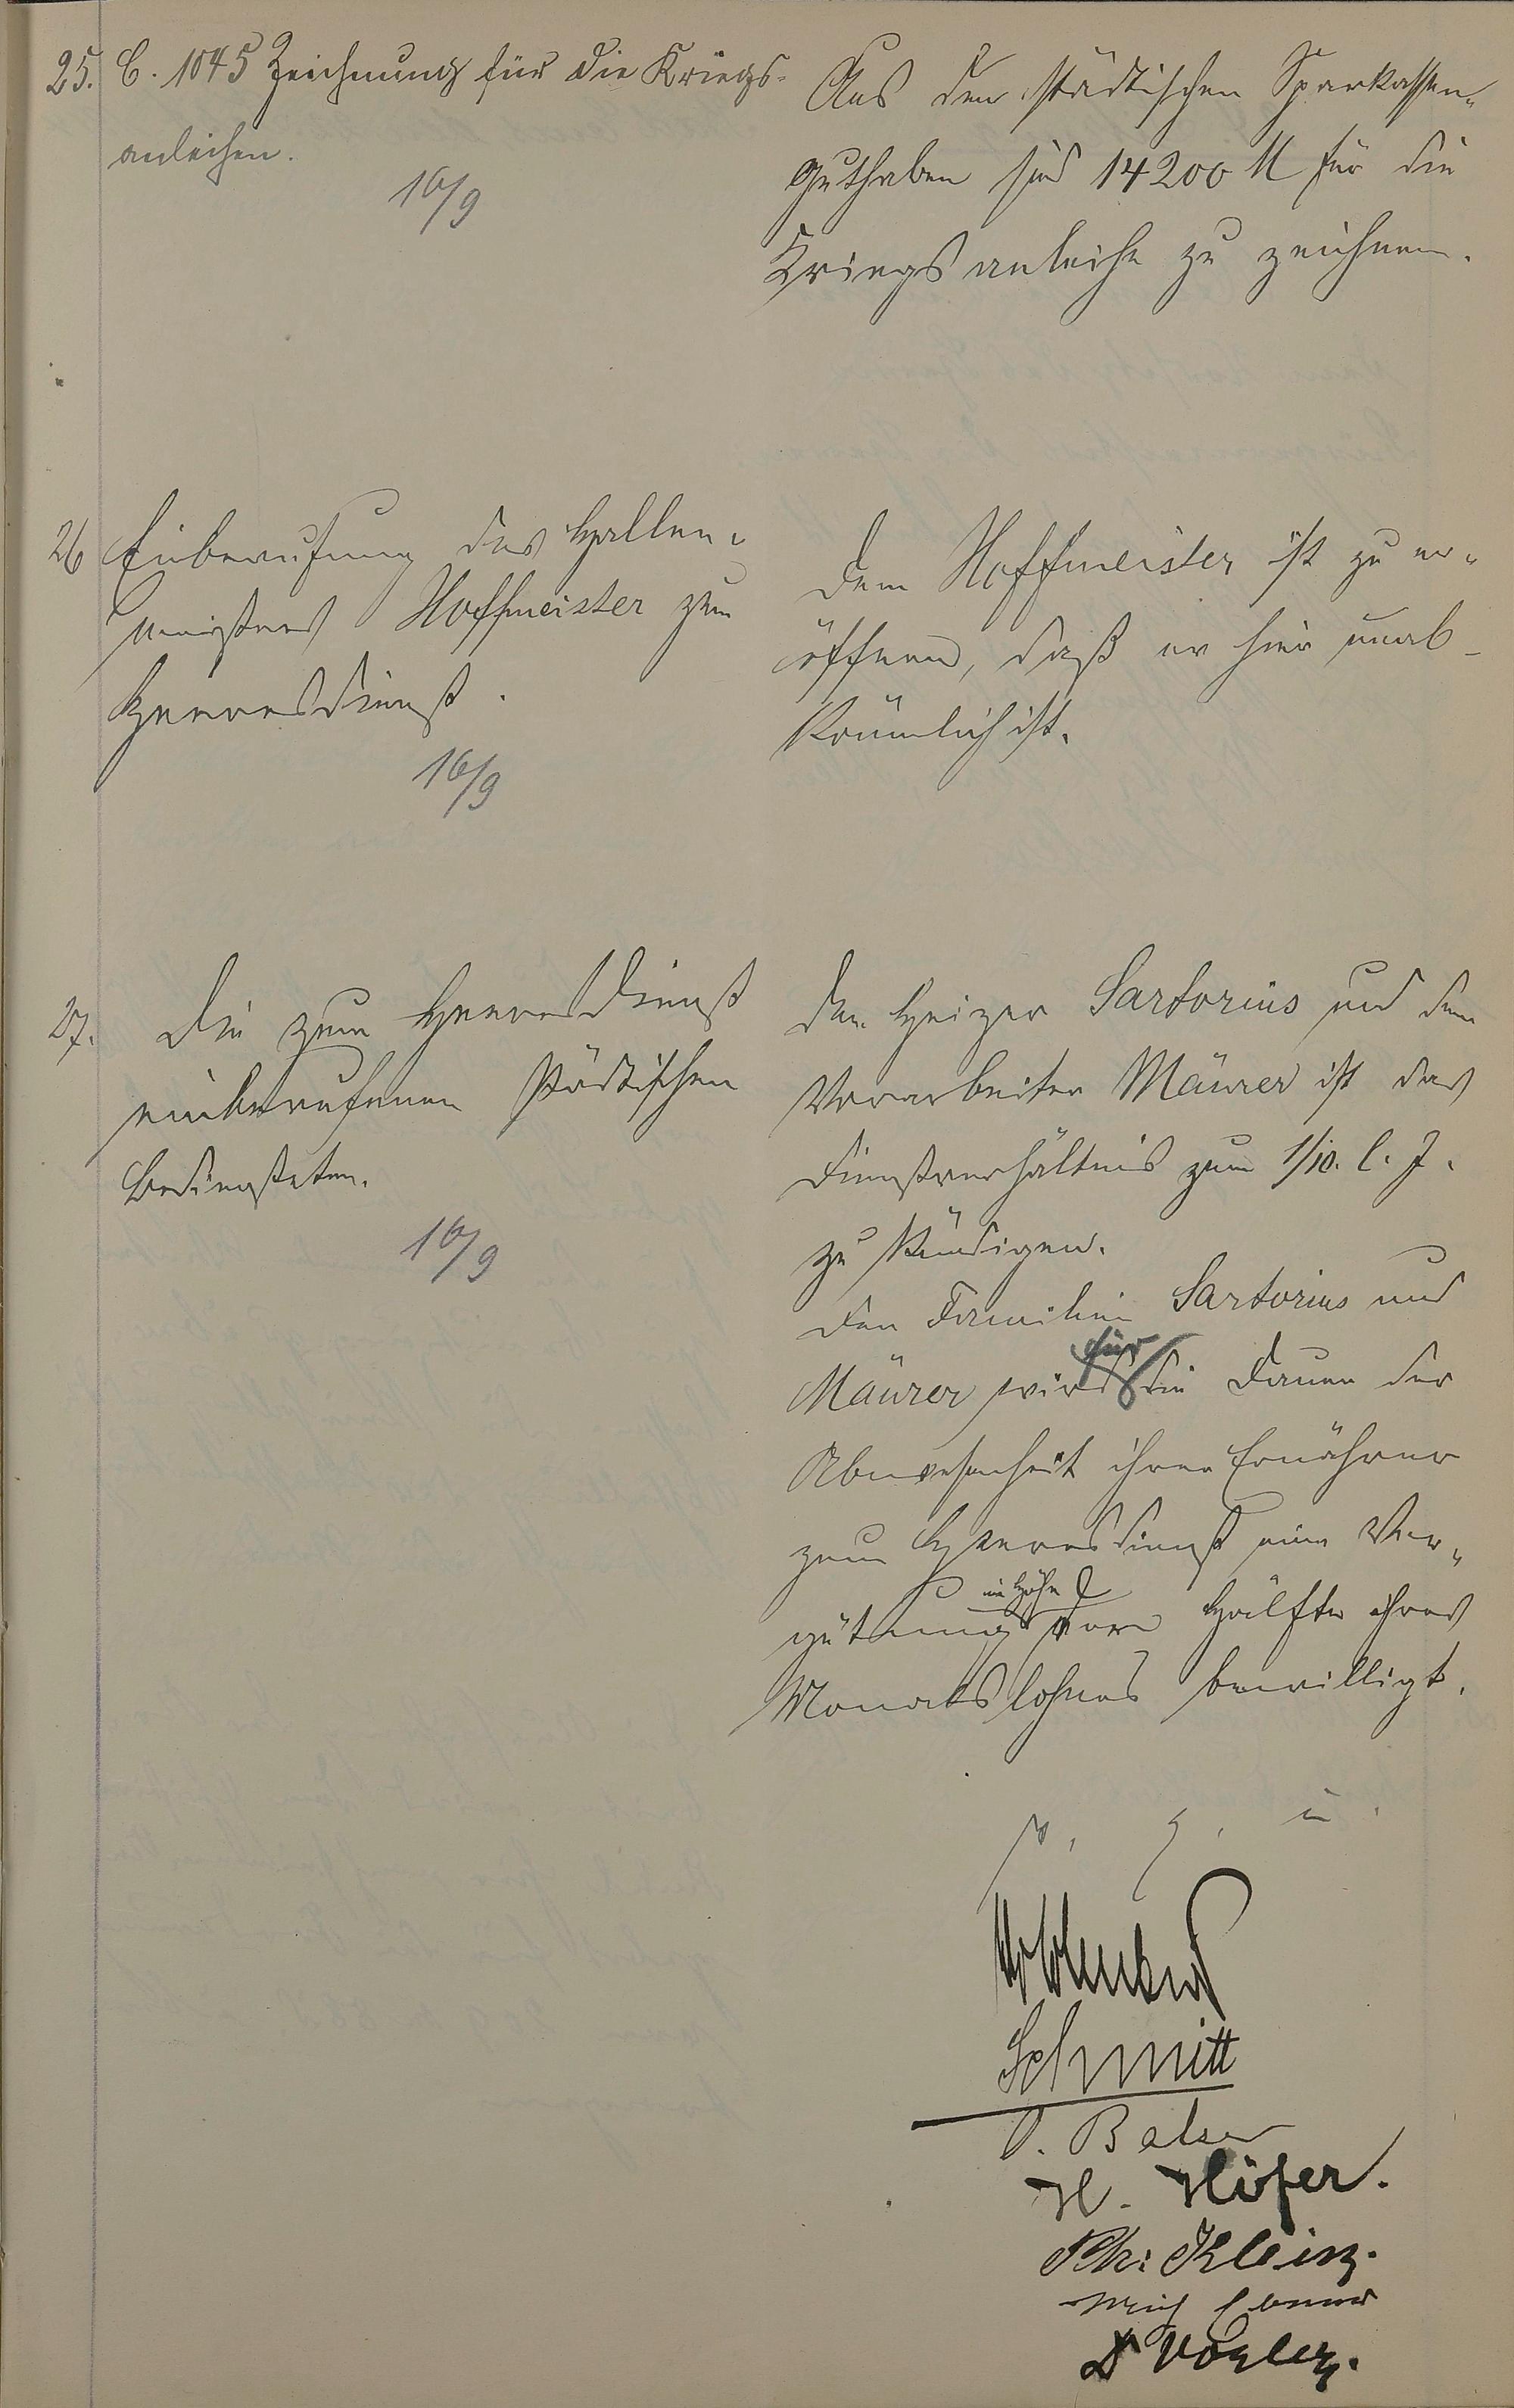 25. C. 1045 Zeichnung für die Kriegs-
anleihen.
16/9
Aus den städtischen Sparkassen-
guthaben sind 14200 M für die
Kriegsanleihe zu zeichnen.
26 Einberufung des Hallen-
meisters Hoffmeister zum
Heeresdienst.
16/9
Dem Hoffmeister ist zu er-
öffnen, daß er hier unab-
kömmlich ist.
27. Die zum Heeresdienst
einberufenen städtischen
Bediensteten.
16/9
Dem Heizer Sartorius und dem
Vorarbeiter Mäurer ist das
Dienstverhältnis zum 1/10. l. J.
zu kündigen.
Den Familien Sartorius und
Mäurer wird für die Dauer der
Abwesenheit ihrer Ernährer
zum Heeresdienst eine Ver-
gütung in Höhe der Hälfte ihres
Monatslohnes bewilligt.
v. g. u.
Schmitt
O. Balser
H. Höfer.
Phr: Klein.
Dr Vogler.